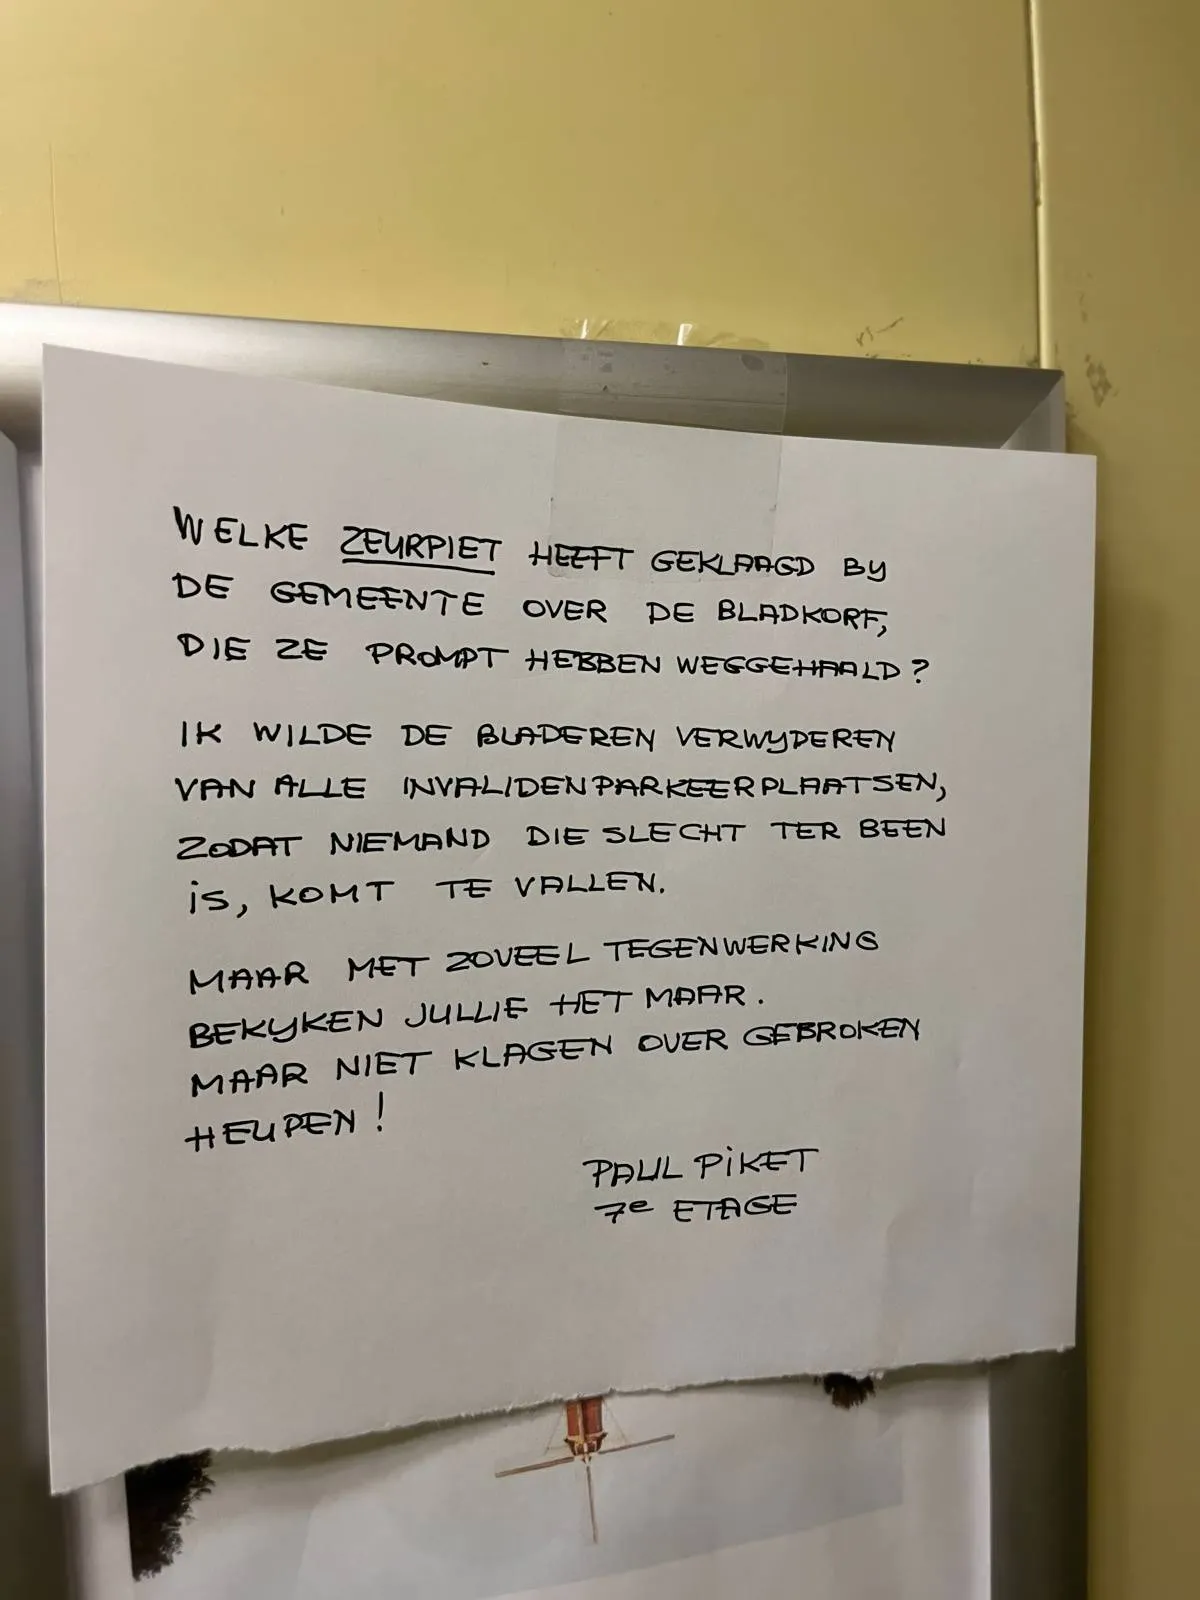 WELKE ZEURPIET HEEFT GEKLAAGD BY
DE GEMEENTE OVER DE BLADKORF,
DIE ZE PROMPT HEBBEN WEGGEHAALD?
IK WILDE DE BLADEREN VERWYDEREN
VAN ALLE INVALIDENPARKEERPLAATSEN,
ZODAT NIEMAND DIE SLECHT TER BEEN
IS, KOMT TE VALLEN.
MAAR MET ZOVEEL TEGENWERKING
BEKYKEN JULLIE HET MAAR.
MAAR NIET KLAGEN OVER GEBROKEN
HEUPEN!
PAUL PIKET
7e ETAGE